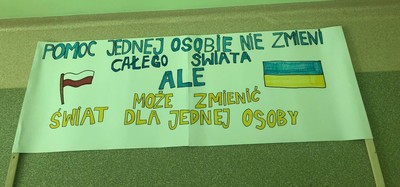 POMOC JEDNEJ OSOBIE NIE ZMIENI
CAŁEGO ŚWIATA
ALE
MOŻE ZMIENIĆ
ŚWIAT DLA JEDNEJ OSOBY